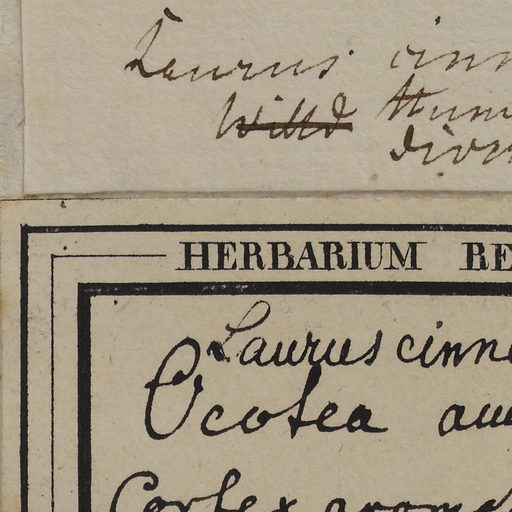 Laurus cinn
Willd Hum
HERBARIUM RE
Laurus cinn
Ocotea
Cortex arom